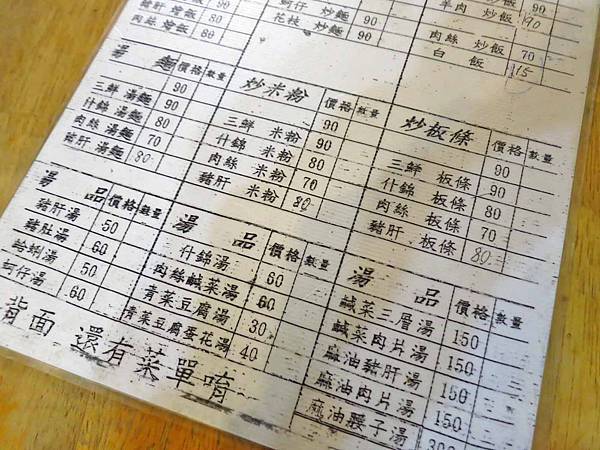 豬肝 燴飯 80
肉絲 燴飯 80
蚵仔 炒麵 90
花枝 炒麵 90
羊肉 炒飯 90
肉絲 炒飯 70
白 飯 15
湯 麵 價格 數量
三鮮 湯麵 90
什錦 湯麵 90
肉絲 湯麵 80
豬肝 湯麵 70
80
炒米粉 價格 數量
三鮮 米粉 90
什錦 米粉 90
肉絲 米粉 80
豬肝 米粉 70
80
炒板條 價格 數量
三鮮 板條 90
什錦 板條 90
肉絲 板條 80
豬肝 板條 70
80
湯 品 價格 數量
豬肝湯 50
豬肚湯 60
蛤蜊湯 50
蚵仔湯 60
湯 品 價格 數量
什錦湯 60
肉絲鹹菜湯 60
青菜豆腐湯 30
青菜豆腐蛋花湯 40
湯 品 價格 數量
鹹菜三層湯 150
鹹菜肉片湯 150
麻油豬肝湯 150
麻油肉片湯 150
麻油腰子湯 300
背面 還有菜單唷